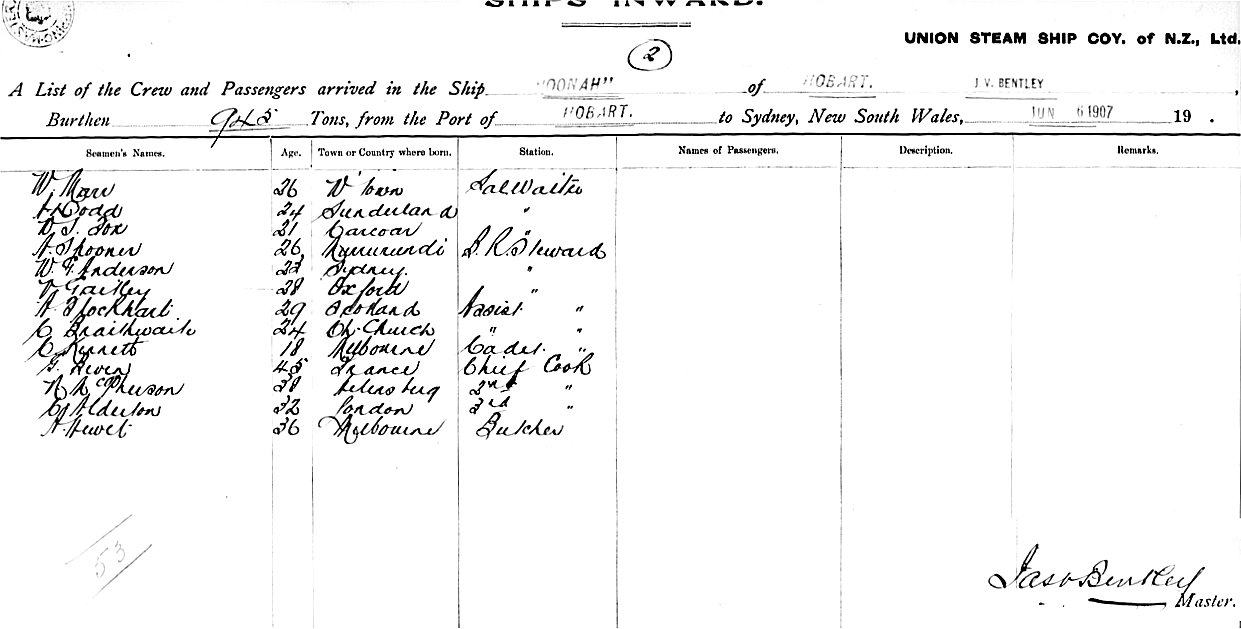 SHIPS INWARD.
2
UNION STEAM SHIP COY. of N.Z., Ltd.
A List of the Crew and Passengers arrived in the Ship "OONAH" of HOBART. J V. BENTLEY,
Burthen 945 Tons, from the Port of HOBART. to Sydney, New South Wales, JUN 6 1907 19 .
Seamen's Names. Age. Town or Country where born. Station. Names of Passengers. Description. Remarks.
W. Marr 26 W'Town Sal Waiter
A Dodd 24 Sunderland "
21 Carcoar "
A. Spooner 26 Murrurundi S. R. Steward
W. F. Anderson 22 Sydney. "
28 Oxford "
A Stockhart 29 Scotland Assist "
C Braithwaite 24 Ch. Church " "
C. Kennett 18 Melbourne Cadet "
G. 45 France Chief Cook
McPherson 38 Helensburg 2nd "
C. Alderton 32 London 3rd "
A. Hewet 36 Melbourne Butcher
53
Jas V Bentley
Master.